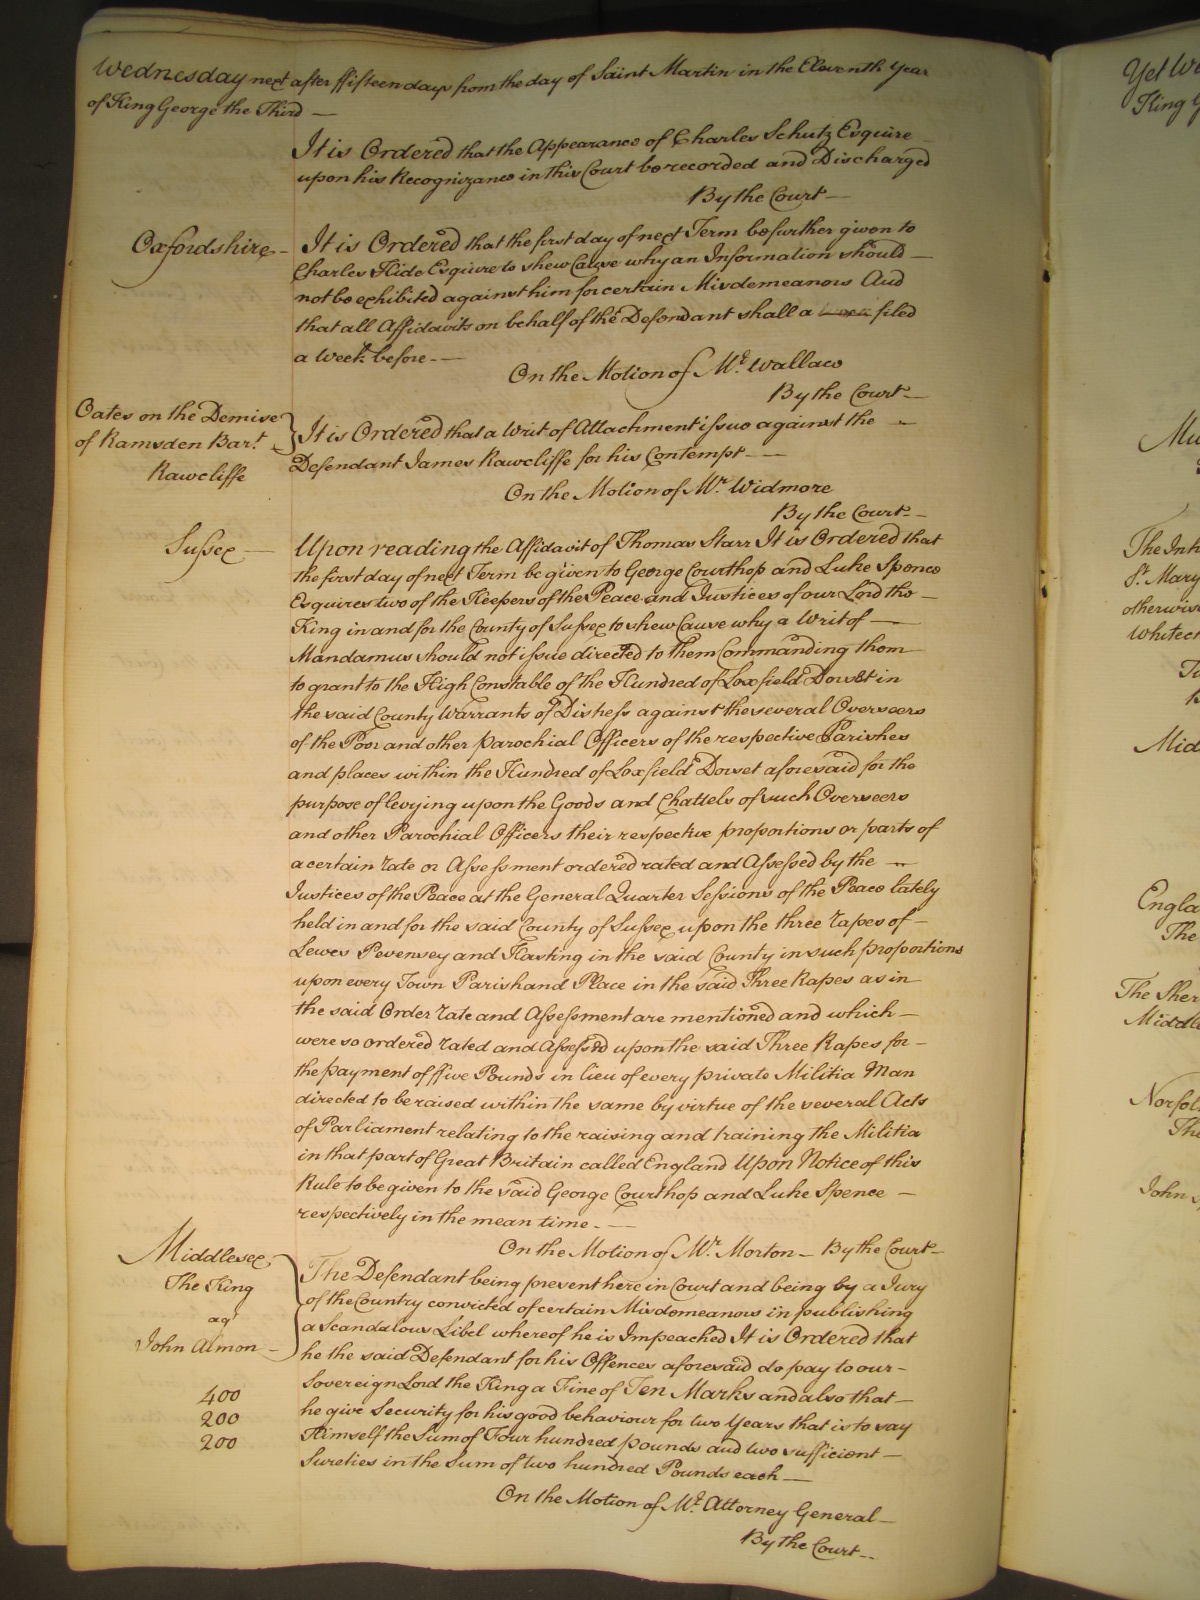 Wednesday next after ffifteen days from the day of Saint Martin in the Eleventh Year
of King George the Third —
It is Ordered that the Appearance of Charles Schutz Esquire
upon his Recognizance in this Court be recorded and Discharged
By the Court —
Oxfordshire —
It is Ordered that the first day of next Term be further given to
Charles Hide Esquire to shew Cause why an Information should —
not be exhibited against him for certain Misdemeanors And
that all Affidavits on behalf of the Defendant shall a filed
a Week before —
On the Motion of Mr. Wallace
By the Court —
Oates on the Demise
of Ramsden Bart.
Rawcliffe
It is Ordered that a Writ of Attachment issue against the —
Defendant James Rawcliffe for his Contempt —
On the Motion of Mr. Widmore
By the Court —
Sussex —
Upon reading the Affidavit of Thomas Starr It is Ordered that
the first day of next Term be given to George Courthop and Luke Spence
Esquires two of the Keepers of the Peace and Justices of our Lord the —
King in and for the County of Sussex to shew Cause why a Writ of —
Mandamus should not issue directed to them Commanding them
to grant to the High Constable of the Hundred of Loxfield Dorset in
the said County Warrants of Distress against the several Overseers
of the Poor and other parochial Officers of the respective Parishes
and places within the Hundred of Loxfield Dorset aforesaid for the
purpose of levying upon the Goods and Chattels of such Overseers
and other Parochial Officers their respective proportions or parts of
a certain rate or Assessment ordered rated and Assessed by the —
Justices of the Peace at the General Quarter Sessions of the Peace lately
held in and for the said County of Sussex upon the three rapes of —
Lewes Pevensey and Hasting in the said County in such proportions
upon every Town Parish and Place in the said Three Rapes as in
the said Order rate and Assessment are mentioned and which —
were so ordered rated and Assessed upon the said Three Rapes for —
the payment of ffive Pounds in lieu of every private Militia Man
directed to be raised within the same by virtue of the several Acts
of Parliament relating to the raising and training the Militia
in that part of Great Britain called England Upon Notice of this
Rule to be given to the said George Courthop and Luke Spence —
respectively in the mean time —
On the Motion of Mr. Morton — By the Court —
Middlesex
The King
agt
John Almon —
400
200
200
The Defendant being present here in Court and being by a Jury
of the Country convicted of certain Misdemeanors in publishing
a Scandalous Libel whereof he is Impeached It is Ordered that
he the said Defendant for his Offences aforesaid do pay to our —
Sovereign Lord the King a Fine of Ten Marks and also that —
he give Security for his good behaviour for two Years that is to say
Himself the Sum of Four hundred pounds and two sufficient —
Sureties in the Sum of two hundred Pounds each —
On the Motion of Mr. Attorney General —
By the Court —